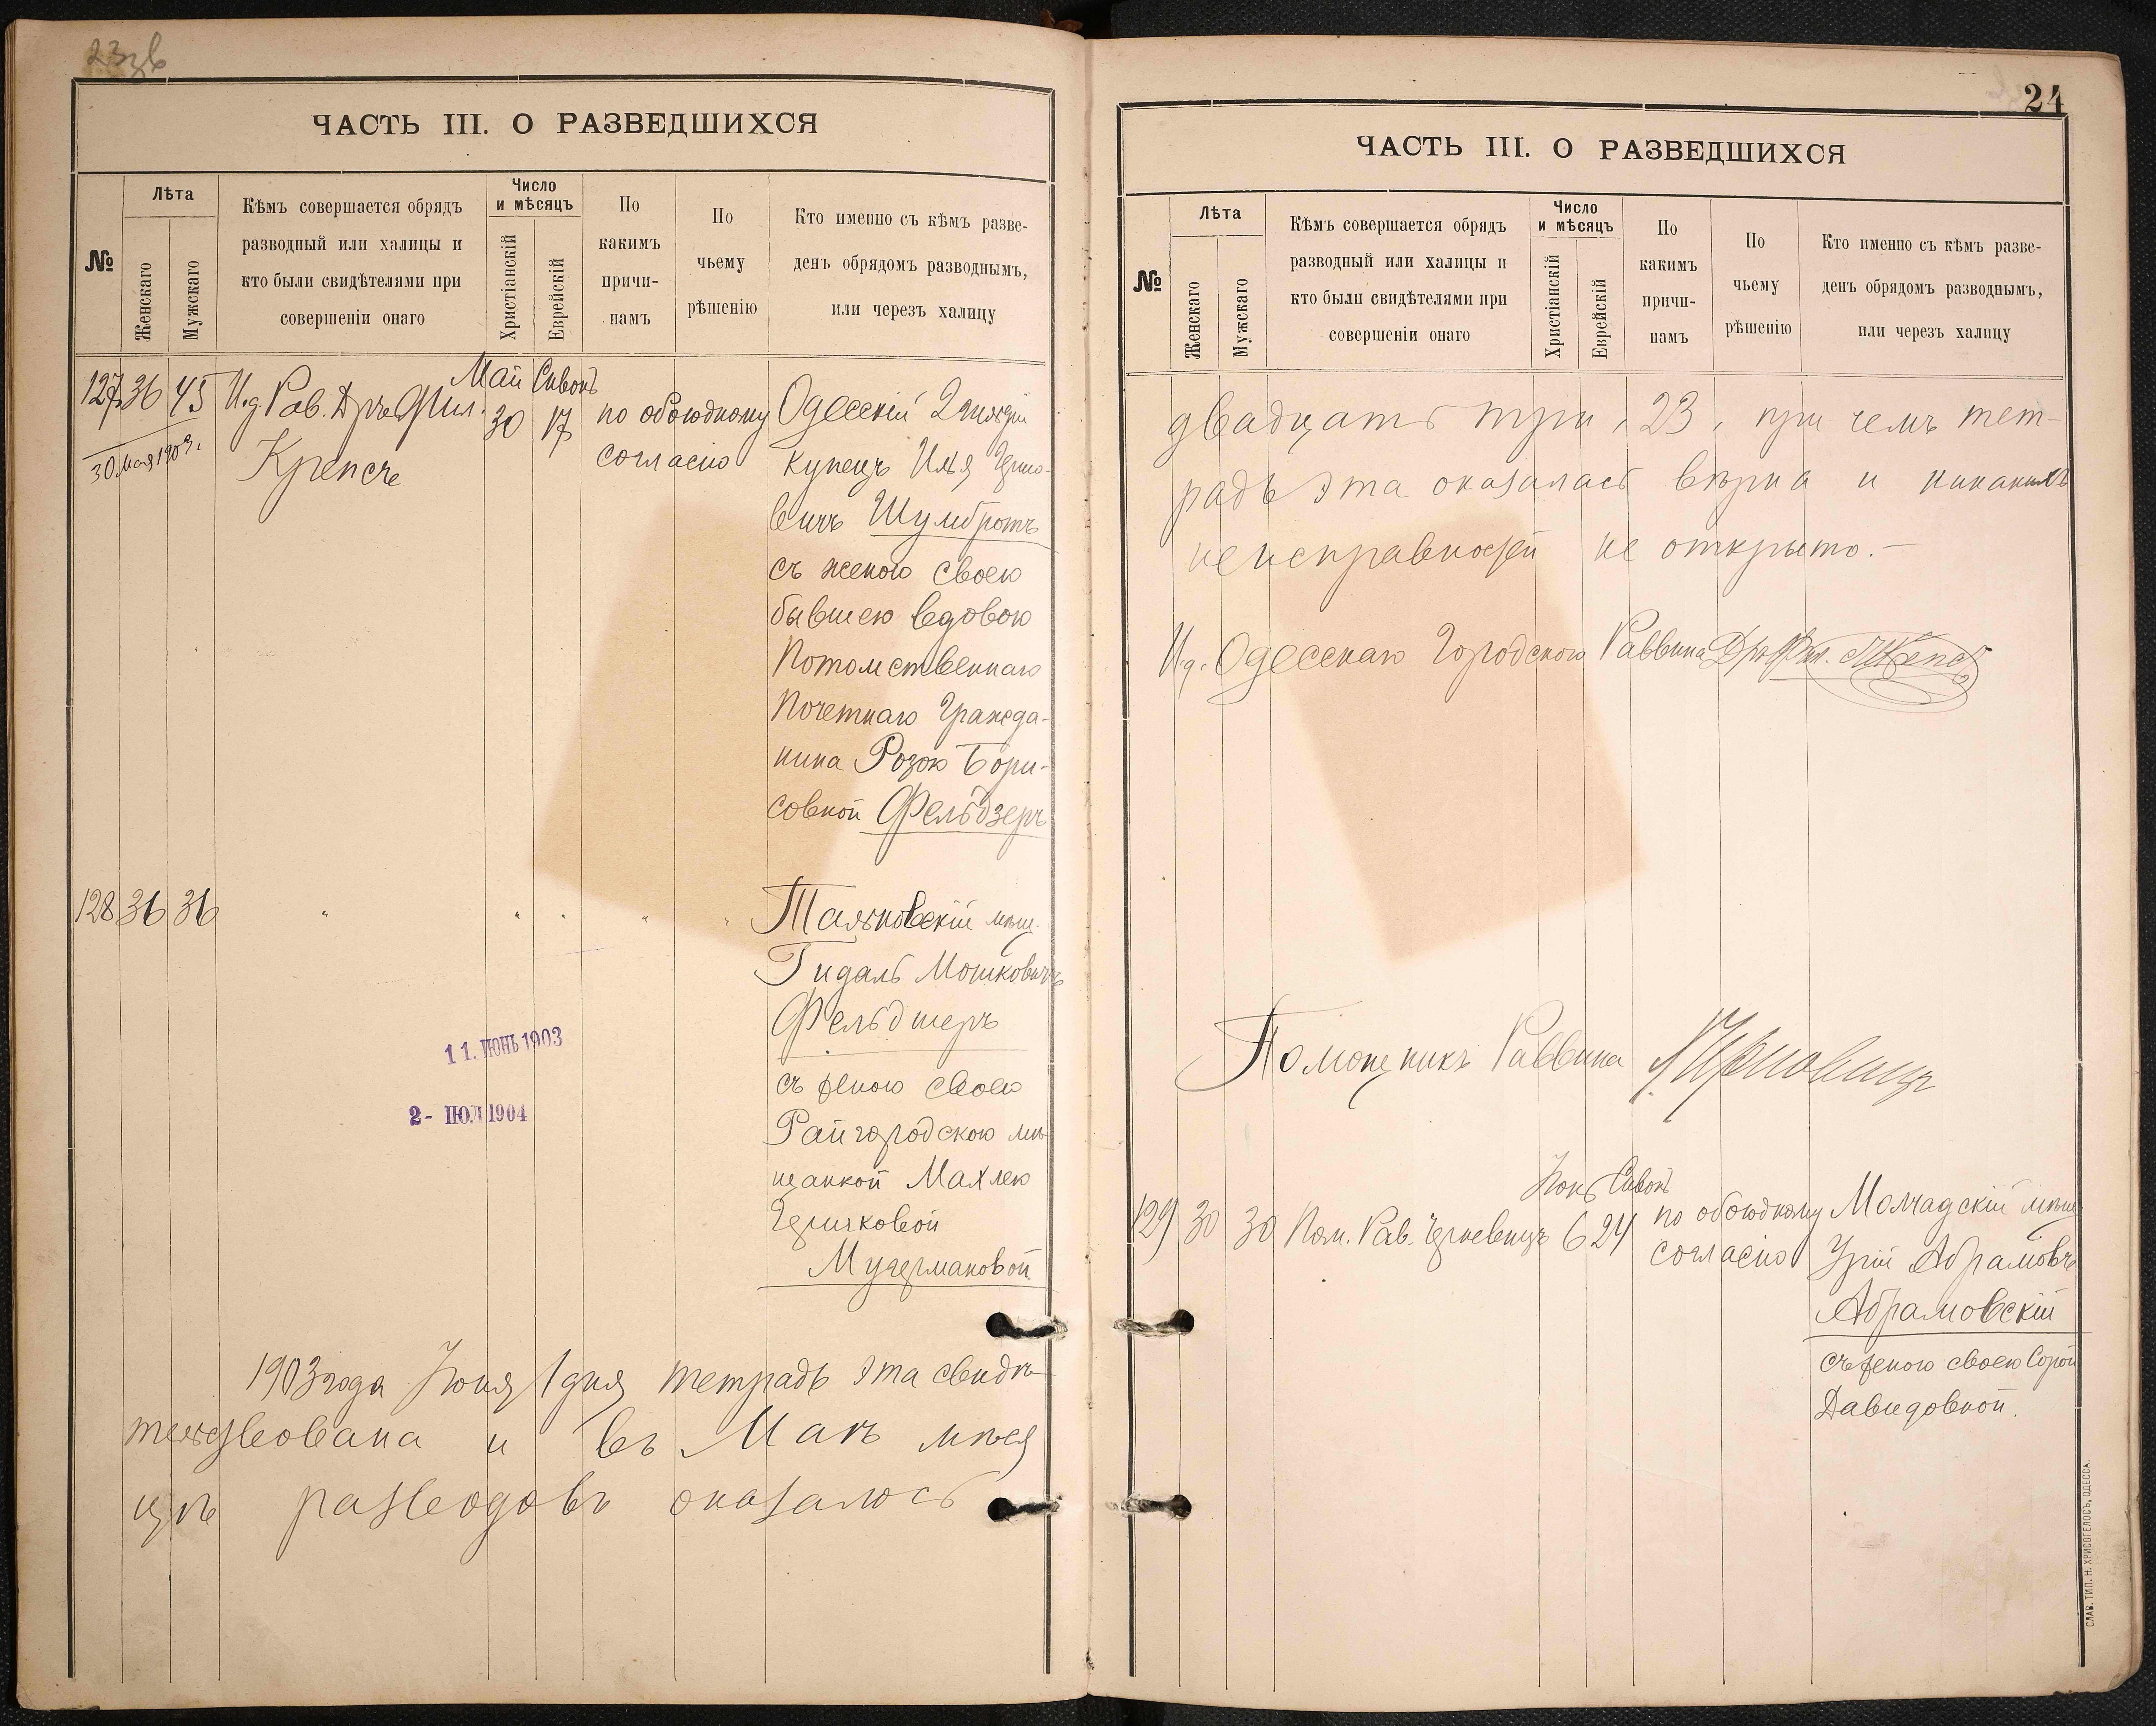 23зв
ЧАСТЬ III. О РАЗВЕДШИХСЯ
№
Лѣта
Женскаго
Мужскаго
Кѣмъ совершается обрядъ
разводный или халицы и
кто были свидѣтелями при
совершеніи онаго
Число
и мѣсяцъ
Христіанскій
Еврейскій
По
какимъ
причи-
намъ
По
чьему
рѣшенію
Кто именно съ кѣмъ разве-
денъ обрядомъ разводнымъ,
или черезъ халицу
127 36 45 И.д. Рав. Дръ Фил.
Крепсъ
30 мая 1903 г.
Май Сивонъ
30 17
по обоюдному
согласію
Одесскій 2 гильдіи
купецъ Илья
вичъ Шумбротъ
съ женою своею
бывшею вдовою
Потомственнаго
Почетнаго Гражда-
нина Розою Бори-
совной Фельдзеръ
128 36 36 " " " " "
Тальновскій мѣщ.
Гидаль Мошковичъ
Фельдшеръ
съ женою своею
Райгородскою мѣ-
щанкой Махлею
Герчковой
11. ІЮНЬ 1903
2- ІЮЛ 1904
1903 года Іюня 1 дня тетрадь эта свидѣ-
тельствована и въ Маѣ мѣся
цѣ разводовъ оказалось
24
ЧАСТЬ III. О РАЗВЕДШИХСЯ
№
Лѣта
Женскаго
Мужскаго
Кѣмъ совершается обрядъ
разводный или халицы и
кто были свидѣтелями при
совершеніи онаго
Число
и мѣсяцъ
Христіанскій
Еврейскій
По
какимъ
причи-
намъ
По
чьему
рѣшенію
Кто именно съ кѣмъ разве-
денъ обрядомъ разводнымъ,
или черезъ халицу
двадцать три, 23, при чемъ тет-
радь эта оказалась вѣрна и никакихъ
неисправностей не открыто.-
И.д. Одесскаго Городского Раввина Дръ Фил. Крепсъ
Помощникъ Раввина
129 30 30 Пом. Рав.
Іюнь Сивонъ
6 24
по обоюдному
согласію
Молчадскій мѣщ.
Урій Абрамовъ
Абрамовскій
съ женою своею Сорой
Давидовной.
СЛАВ. ТИП. Н. ХРИСОГЕЛОСЪ, ОДЕССА.